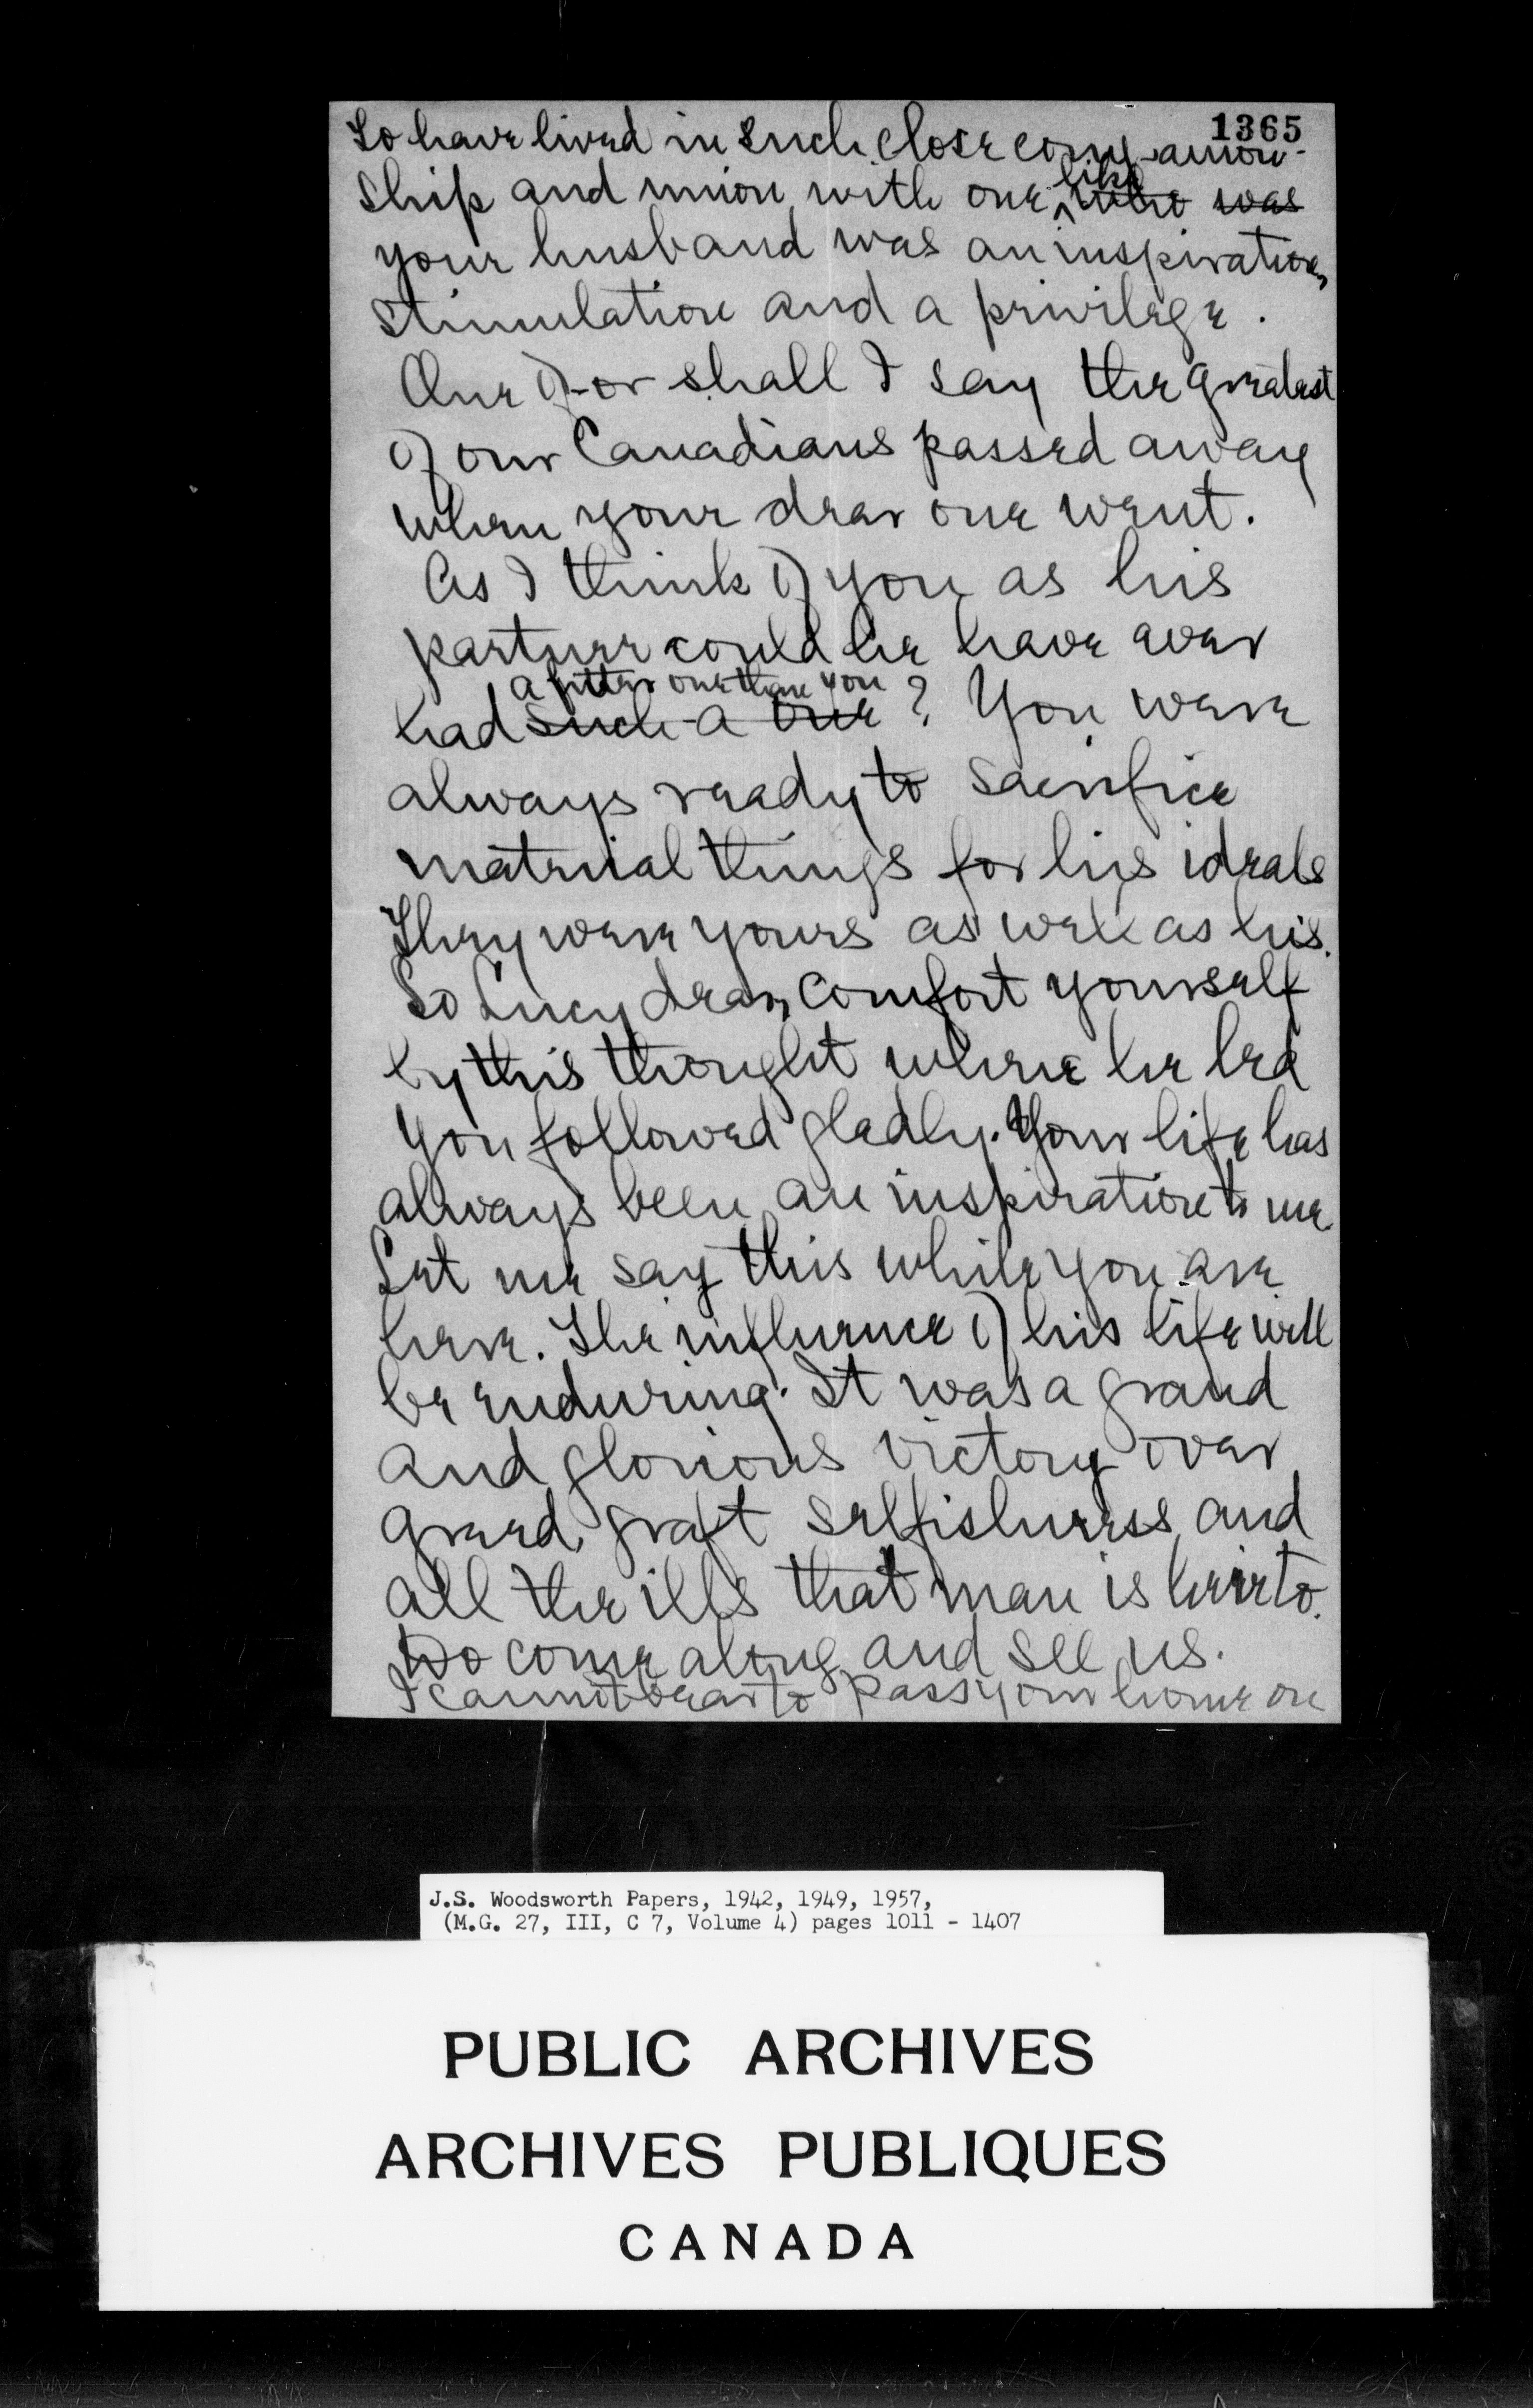 1365
To have lived in such close companion-
ship and union with one like who was
your husband was an inspiration,
stimulation and a privilege.
One of - or shall I say the greatest
of our Canadians passed away
when your dear one went.
As I think of you as his
partner could he have ever
a fitter one than you
had such a one? You were
always ready to sacrifice
material things for his ideals
They were yours as well as his.
So Lucy dear, comfort yourself
by this thought where he led
you followed gladly. Your life has
always been an inspiration to me.
Let me say this while you are
here. The influence of his life will
be enduring. It was a grand
and glorious victory over
greed, graft selfishness, and
all the ills that man is heir to.
Do come along and see us.
I cannot bear to pass your home on
J.S. Woodsworth Papers, 1942, 1949, 1957,
(M.G. 27, III, C 7, Volume 4) pages 1011 - 1407
PUBLIC ARCHIVES
ARCHIVES PUBLIQUES
CANADA